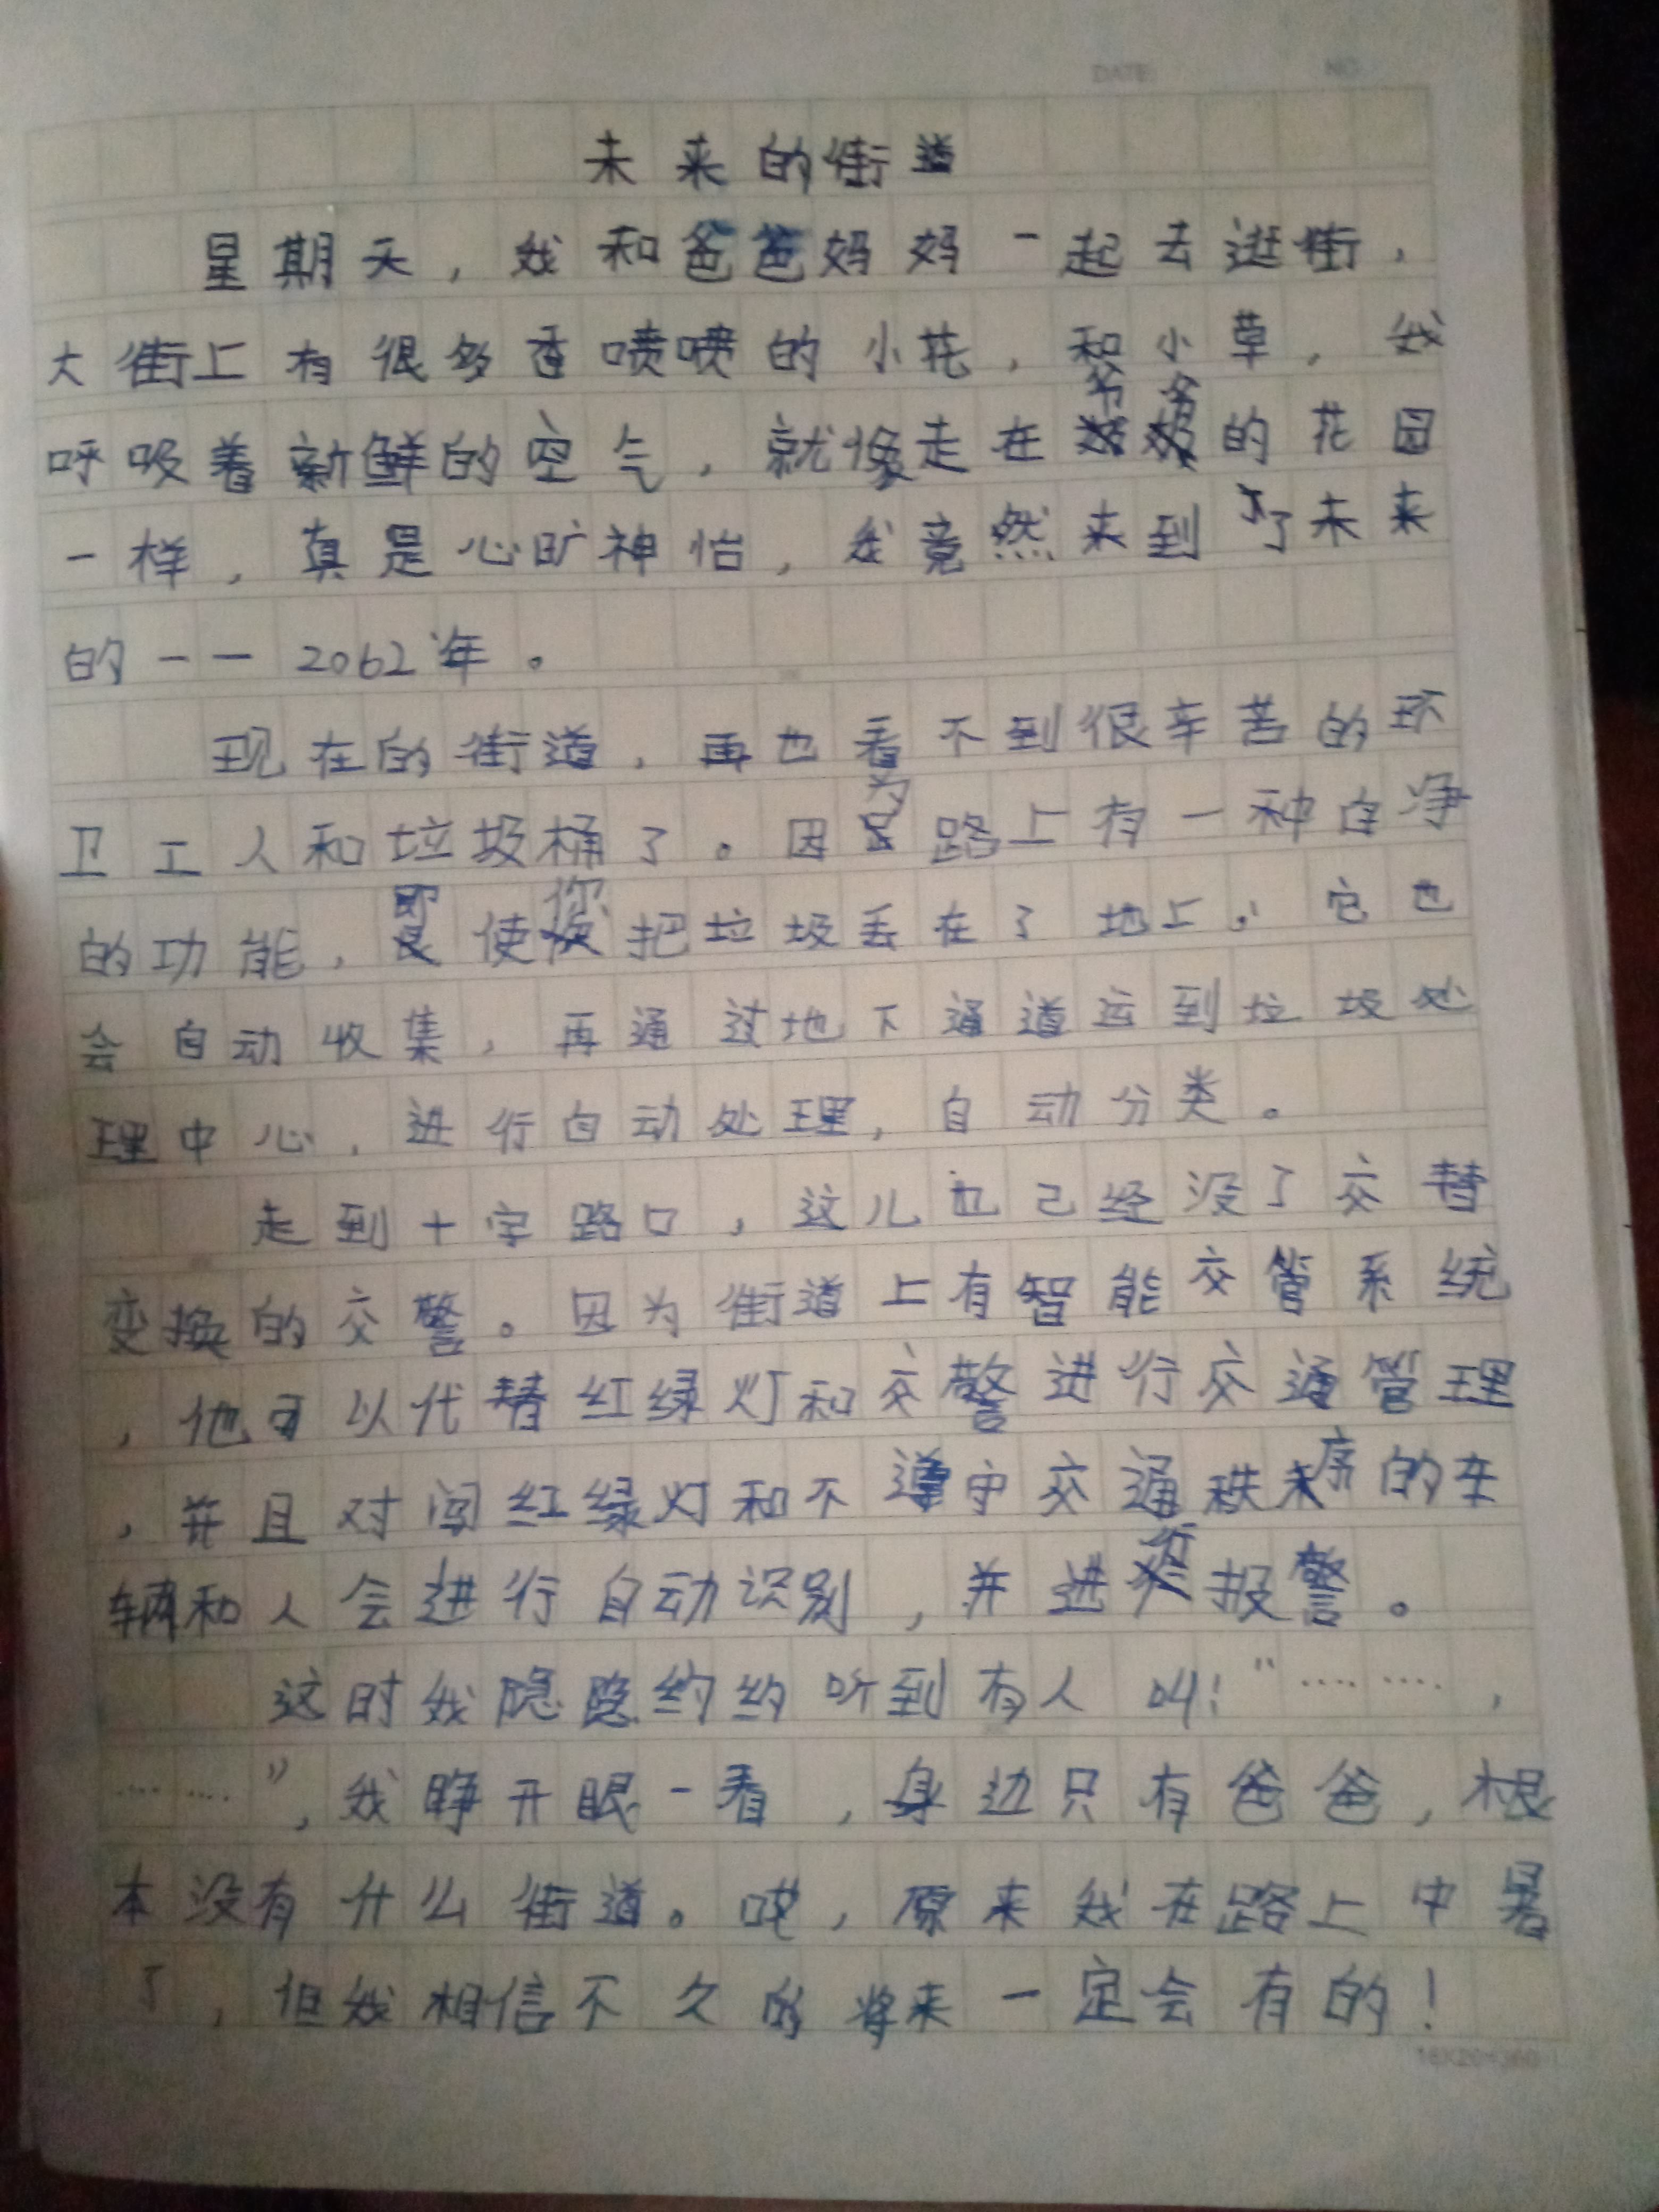 DATE: NO.
未来的街道
星期天，我和爸爸妈妈一起去逛街，
大街上有很多香喷喷的小花，和小草，我
呼吸着新鲜的空气，就像走在爷爷的花园
一样，真是心旷神怡，我竟然来到了未来
的——2062年。
现在的街道，再也看不到很辛苦的环
卫工人和垃圾桶了。因为路上有一种自净
的功能，即使你把垃圾丢在了地上，它也
会自动收集，再通过地下通道运到垃圾处
理中心，进行自动处理，自动分类。
走到十字路口，这儿也已经没了交替
变换的交警。因为街道上有智能交管系统
，他可以代替红绿灯和交警进行交通管理
，并且对闯红绿灯和不遵守交通秩序的车
辆和人会进行自动识别，并进行报警。
这时我隐隐约约听到有人叫：“…… ……，
…… ……”，我睁开眼一看，身边只有爸爸，根
本没有什么街道。哎，原来我在路上中暑
了，但我相信不久的将来一定会有的！